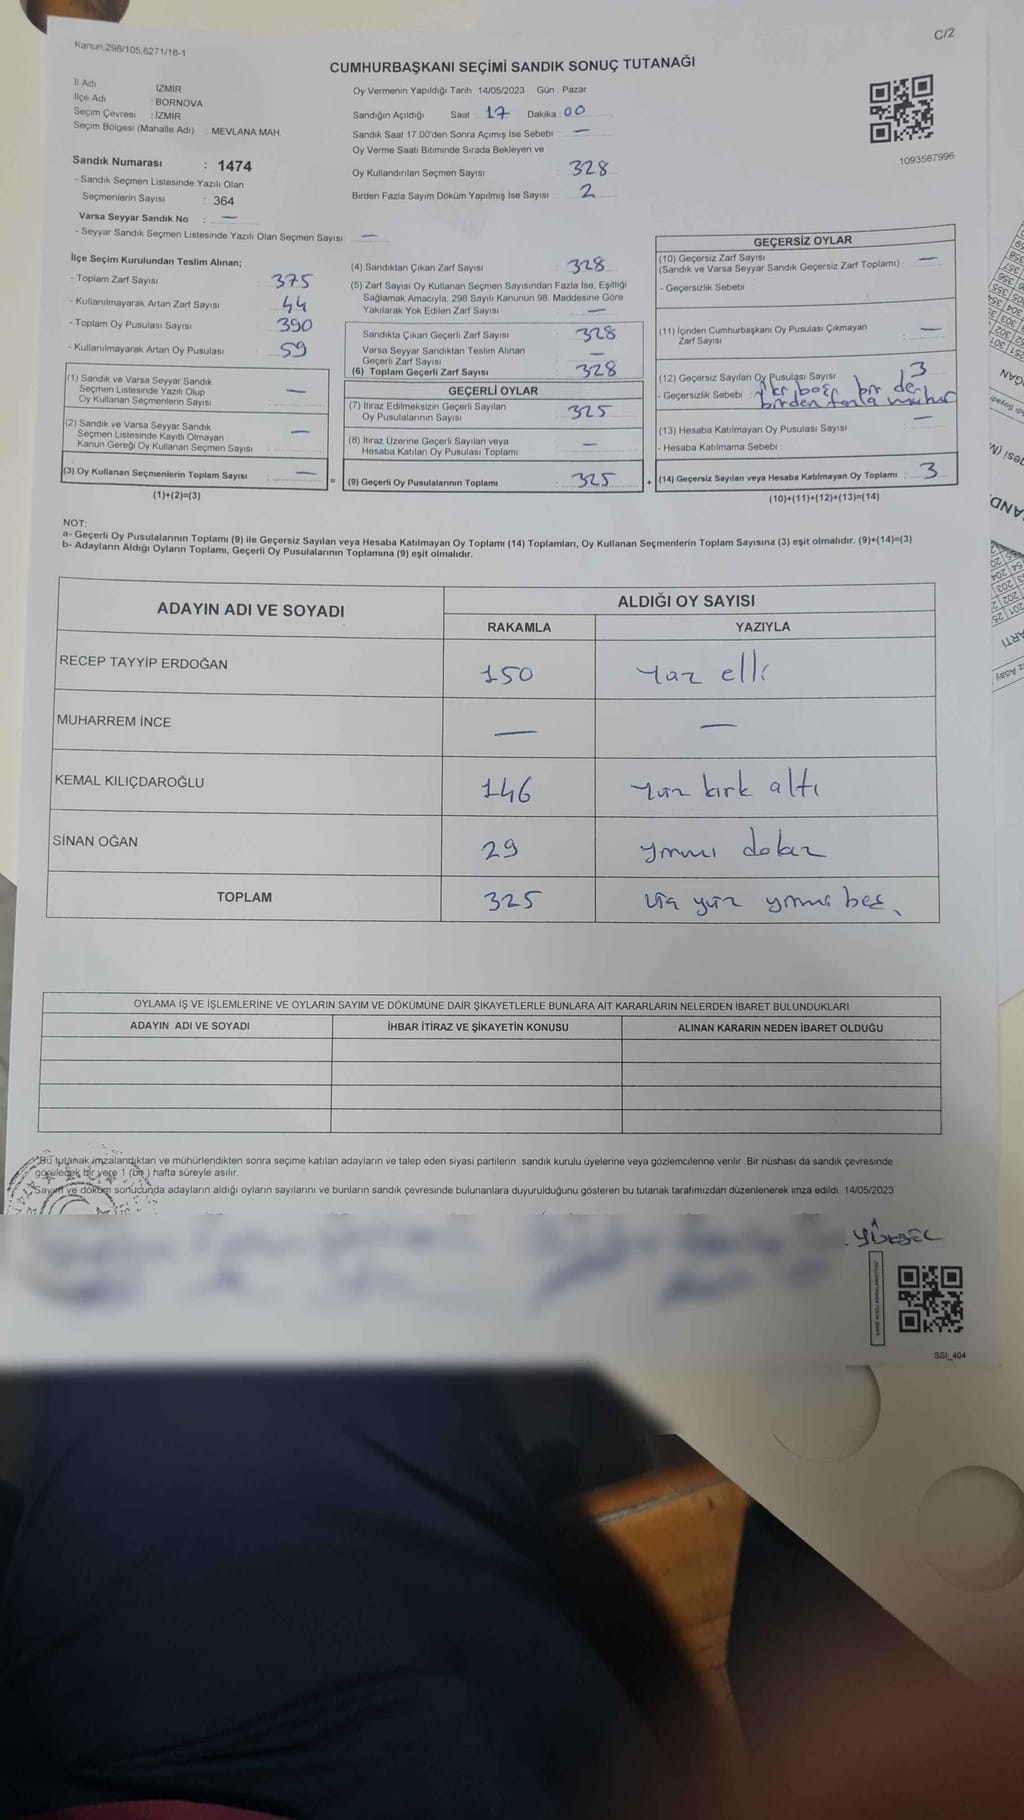 Kanun,298/105,6271/18-1
C/2
CUMHURBAŞKANI SEÇİMİ SANDIK SONUÇ TUTANAĞI
İl Adı İZMİR
İlçe Adı BORNOVA
Seçim Çevresi : İZMİR
Seçim Bölgesi (Mahalle Adı) : MEVLANA MAH.
Sandık Numarası : 1474
- Sandık Seçmen Listesinde Yazılı Olan
Seçmenlerin Sayısı : 364
Varsa Seyyar Sandık No : —
- Seyyar Sandık Seçmen Listesinde Yazılı Olan Seçmen Sayısı: —
Oy Vermenin Yapıldığı Tarih 14/05/2023 Gün Pazar
Sandığın Açıldığı Saat 17 Dakika 00
Sandık Saat 17:00'den Sonra Açımış İse Sebebi : —
Oy Verme Saati Bitiminde Sırada Bekleyen ve
Oy Kullandırılan Seçmen Sayısı : 328
Birden Fazla Sayım Döküm Yapılmış İse Sayısı : 2
1093587996
İlçe Seçim Kurulundan Teslim Alınan;
- Toplam Zarf Sayısı : 375
- Kullanılmayarak Artan Zarf Sayısı : 44
- Toplam Oy Pusulası Sayısı : 390
- Kullanılmayarak Artan Oy Pusulası : 59
(1) Sandık ve Varsa Seyyar Sandık
Seçmen Listesinde Yazılı Olup
Oy Kullanan Seçmenlerin Sayısı : —
(2) Sandık ve Varsa Seyyar Sandık
Seçmen Listesinde Kayıtlı Olmayan
Kanun Gereği Oy Kullanan Seçmen Sayısı : —
(3) Oy Kullanan Seçmenlerin Toplam Sayısı : —
(1)+(2)=(3)
=
(4) Sandıktan Çıkan Zarf Sayısı : 328
(5) Zarf Sayısı Oy Kullanan Seçmen Sayısından Fazla İse, Eşitliği
Sağlamak Amacıyla, 298 Sayılı Kanunun 98. Maddesine Göre
Yakılarak Yok Edilen Zarf Sayısı : —
Sandıkta Çıkan Geçerli Zarf Sayısı : 328
Varsa Seyyar Sandıktan Teslim Alınan
Geçerli Zarf Sayısı : —
(6) Toplam Geçerli Zarf Sayısı : 328
GEÇERLİ OYLAR
(7) İtiraz Edilmeksizin Geçerli Sayılan
Oy Pusulalarının Sayısı : 325
(8) İtiraz Üzerine Geçerli Sayılan veya
Hesaba Katılan Oy Pusulası Toplamı : —
(9) Geçerli Oy Pusulalarının Toplamı : 325
+
GEÇERSİZ OYLAR
(10) Geçersiz Zarf Sayısı
(Sandık ve Varsa Seyyar Sandık Geçersiz Zarf Toplamı) : —
- Geçersizlik Sebebi
(11) İçinden Cumhurbaşkanı Oy Pusulası Çıkmayan
Zarf Sayısı : —
(12) Geçersiz Sayılan Oy Pusulası Sayısı : 3
- Geçersizlik Sebebi : iki boş, bir de
birden fazla mühür
(13) Hesaba Katılmayan Oy Pusulası Sayısı : —
- Hesaba Katılmama Sebebi :
(14) Geçersiz Sayılan veya Hesaba Katılmayan Oy Toplamı : 3
(10)+(11)+(12)+(13)=(14)
NOT:
a- Geçerli Oy Pusulalarının Toplamı (9) ile Geçersiz Sayılan veya Hesaba Katılmayan Oy Toplamı (14) Toplamları, Oy Kullanan Seçmenlerin Toplam Sayısına (3) eşit olmalıdır. (9)+(14)=(3)
b- Adayların Aldığı Oyların Toplamı, Geçerli Oy Pusulalarının Toplamına (9) eşit olmalıdır.
ADAYIN ADI VE SOYADI ALDIĞI OY SAYISI
RAKAMLA YAZIYLA
RECEP TAYYİP ERDOĞAN 150 Yüz elli
MUHARREM İNCE — —
KEMAL KILIÇDAROĞLU 146 Yüz kırk altı
SİNAN OĞAN 29 yirmi dokuz
TOPLAM 325 üç yüz yirmi beş
OYLAMA İŞ VE İŞLEMLERİNE VE OYLARIN SAYIM VE DÖKÜMÜNE DAİR ŞİKAYETLERLE BUNLARA AİT KARARLARIN NELERDEN İBARET BULUNDUKLARI
ADAYIN ADI VE SOYADI İHBAR İTİRAZ VE ŞİKAYETİN KONUSU ALINAN KARARIN NEDEN İBARET OLDUĞU
Bu tutanak imzalandıktan ve mühürlendikten sonra seçime katılan adayların ve talep eden siyasi partilerin sandık kurulu üyelerine veya gözlemcilerine verilir. Bir nüshası da sandık çevresinde
görülecek bir yere 1 (bir) hafta süreyle asılır.
Sayım ve döküm sonucunda adayların aldığı oyların sayılarını ve bunların sandık çevresinde bulunanlara duyurulduğunu gösteren bu tutanak tarafımızdan düzenlenerek imza edildi. 14/05/2023
YÜKSEL
SSI_404